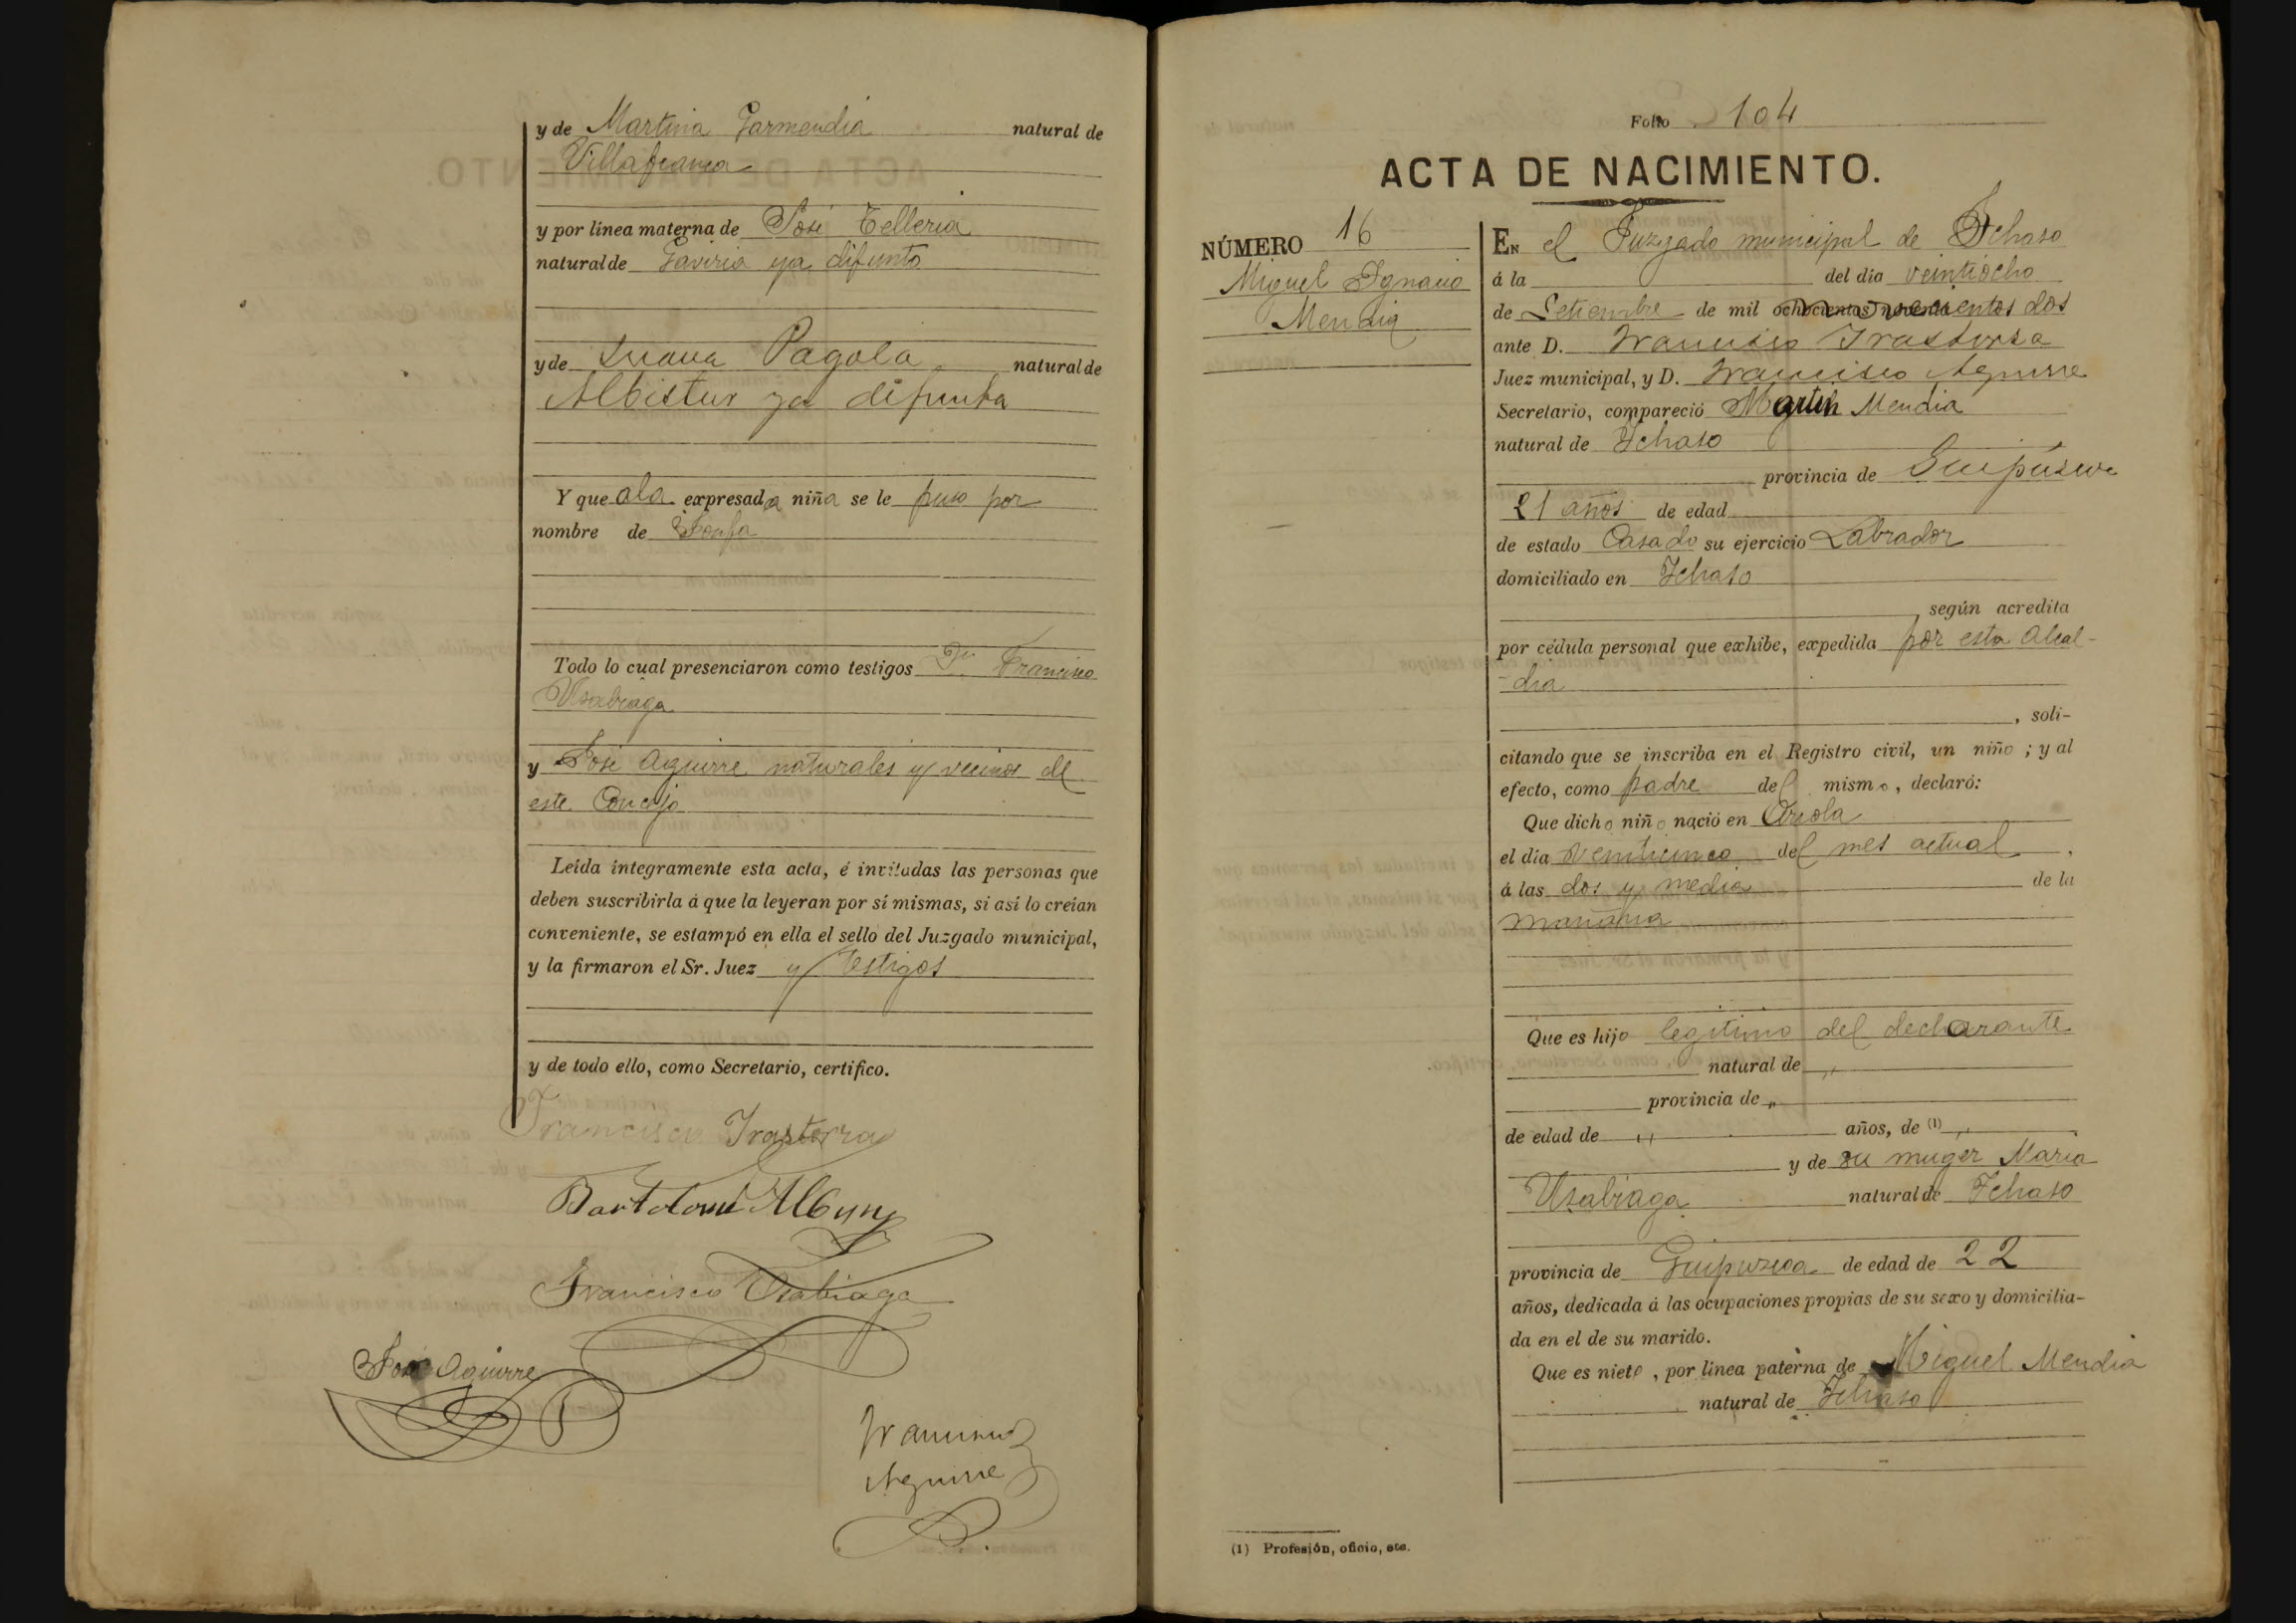 y de Martina Garmendia natural de
Villafranca
y por línea materna de José Telleria
natural de Gaviria ya difunto
y de Juana Pagola natural de
Albistur ya difunta
Y que ala expresada niña se le puso por
nombre de Josefa
Todo lo cual presenciaron como testigos Dn Francisco
Usabiaga
y José Aguirre naturales y vecinos de
este Concejo
Leída íntegramente esta acta, é invitadas las personas que
deben suscribirla á que la leyeran por sí mismas, si así lo creían
conveniente, se estampó en ella el sello del Juzgado municipal,
y la firmaron el Sr. Juez y testigos
y de todo ello, como Secretario, certifico.
Francisco Irastorza
Bartolomé
Francisco Usabiaga
José Aguirre
Francisco
Aguirre
Folio 104
ACTA DE NACIMIENTO.
NÚMERO 16
Miguel Ignacio
Mendia
En el Juzgado municipal de Ichaso
á la del día veintiocho
de Setiembre de mil novecientos dos
ante D. Francisco Irastorza
Juez municipal, y D. Francisco Aguirre
Secretario, compareció Martin Mendia
natural de Ichaso
provincia de Guipúzcoa
21 años de edad
de estado Casado su ejercicio Labrador
domiciliado en Ichaso
, según acredita
por cédula personal que exhibe, expedida por esta Alcal-
-dia
, soli-
citando que se inscriba en el Registro civil, un niño ; y al
efecto, como padre del mismo, declaró:
Que dicho niño nació en Arcola
el día veinticinco del mes actual.
á las dos y media de la
mañana
Que es hijo legitimo del declarante
natural de „
provincia de „
de edad de „ años, de (1) „
y de su muger Maria
Usabiaga natural de Ichaso
provincia de Guipuzcoa de edad de 22
años, dedicada á las ocupaciones propias de su sexo y domicilia-
da en el de su marido.
Que es nieto, por línea paterna de Miguel Mendia
natural de Ichaso
(1) Profesión, oficio, etc.